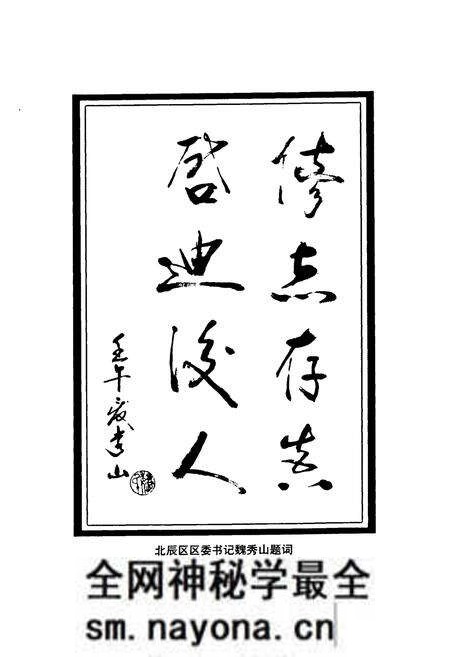 修志存真
啓迪後人
壬午夏秀山
北辰区区委书记魏秀山题词
全网神秘学最全
sm.nayona.cn